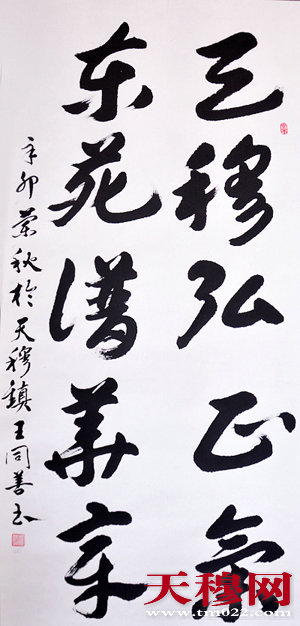 天穆弘正气
东苑谱华章
辛卯兰秋于天穆镇王同善书
天穆网
www.tm022.com